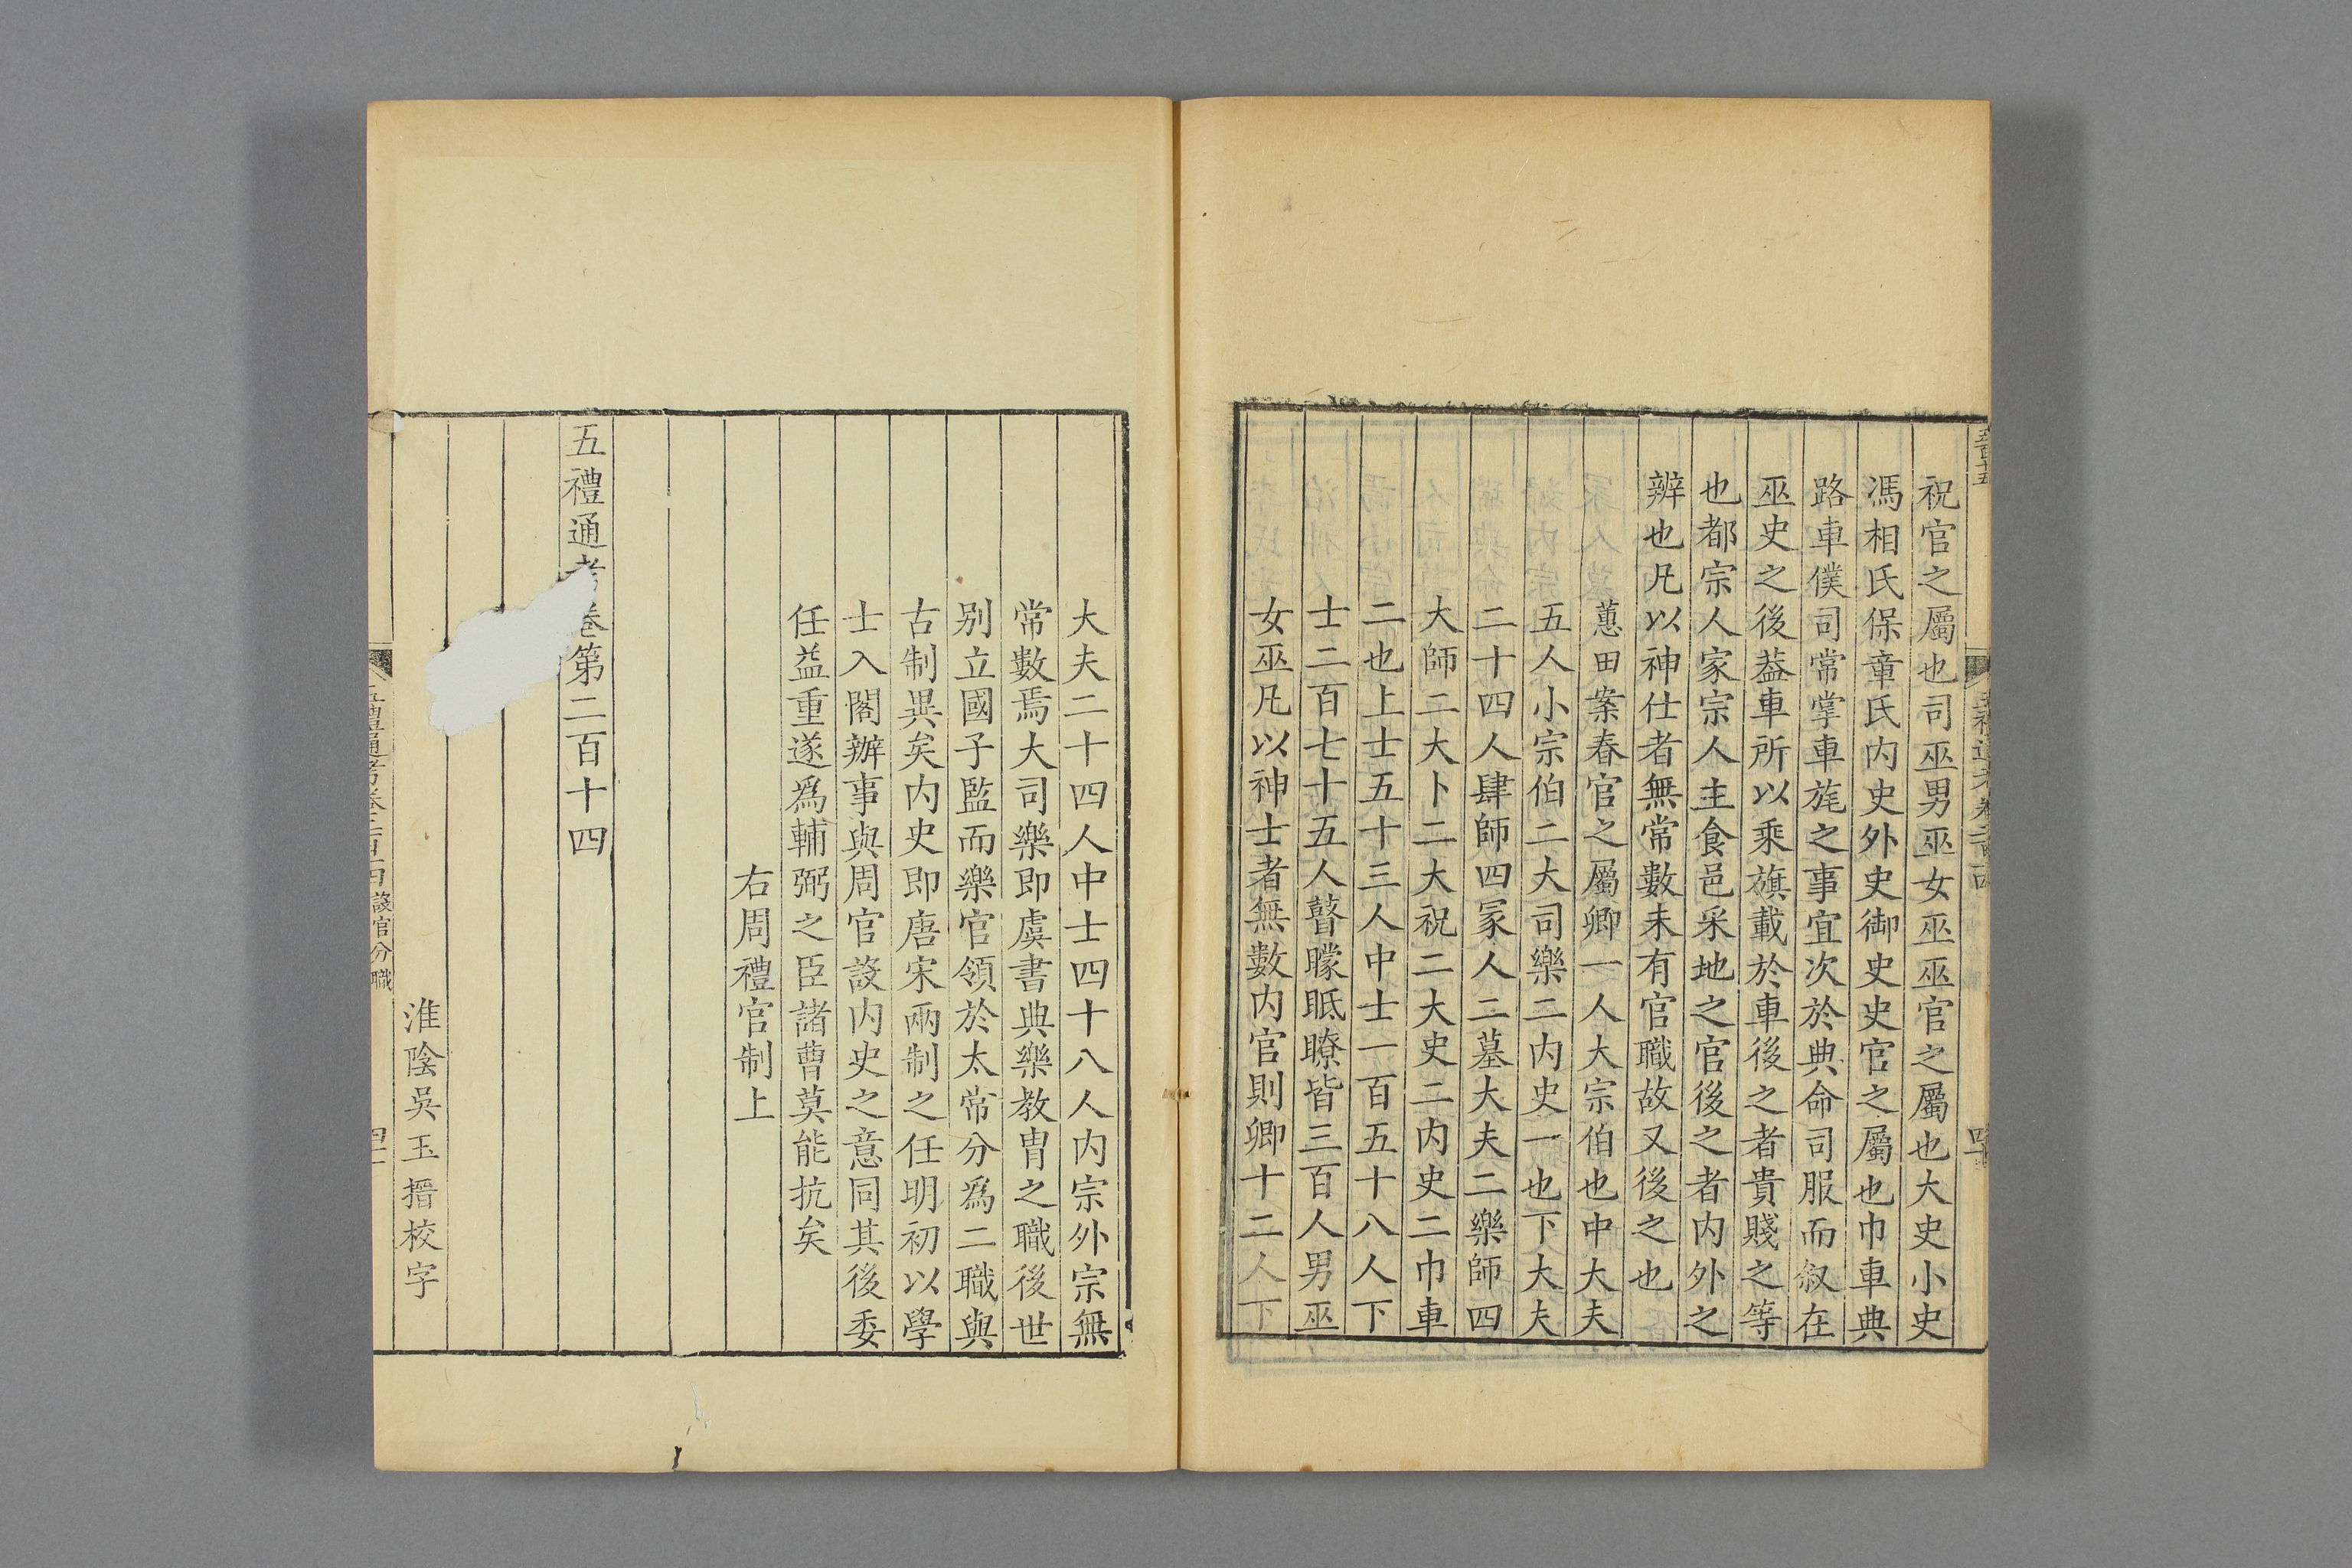 祝官之屬也司巫男巫女巫巫官之屬也大史小史
馮相氏保章氏内史外史御史史官之屬也巾車典
路車僕司常掌車旄之事宜次於典命司服而叙在
巫史之後葢車所以乘旗載於車後之者貴賤之等
也都宗人家宗人主食邑采地之官後之者内外之
辨也凡以神仕者無常數未有官職故又後之也
蕙田案春官之屬卿一人大宗伯也中大夫
五人小宗伯二大司樂二内史一也下大夫
二十四人肆師四冢人二墓大夫二樂師四
大師二大卜二大祝二大史二内史二巾車
二也上士五十三人中士一百五十八人下
士二百七十五人瞽矇眡瞭皆三百人男巫
女巫凡以神士者無數内官則卿十二人下
大夫二十四人中士四十八人内宗外宗無
常數焉大司樂即虞書典樂教胄之職後世
别立國子監而樂官領於太常分爲二職與
古制異矣内史即唐宋兩制之任明初以學
士入閣辦事與周官設内史之意同其後委
任益重遂爲輔弼之臣諸曹莫能抗矣
右周禮官制上
五禮通考卷第二百十四
淮陰吳玉搢校字
五禮通考卷二百十四 設官分職